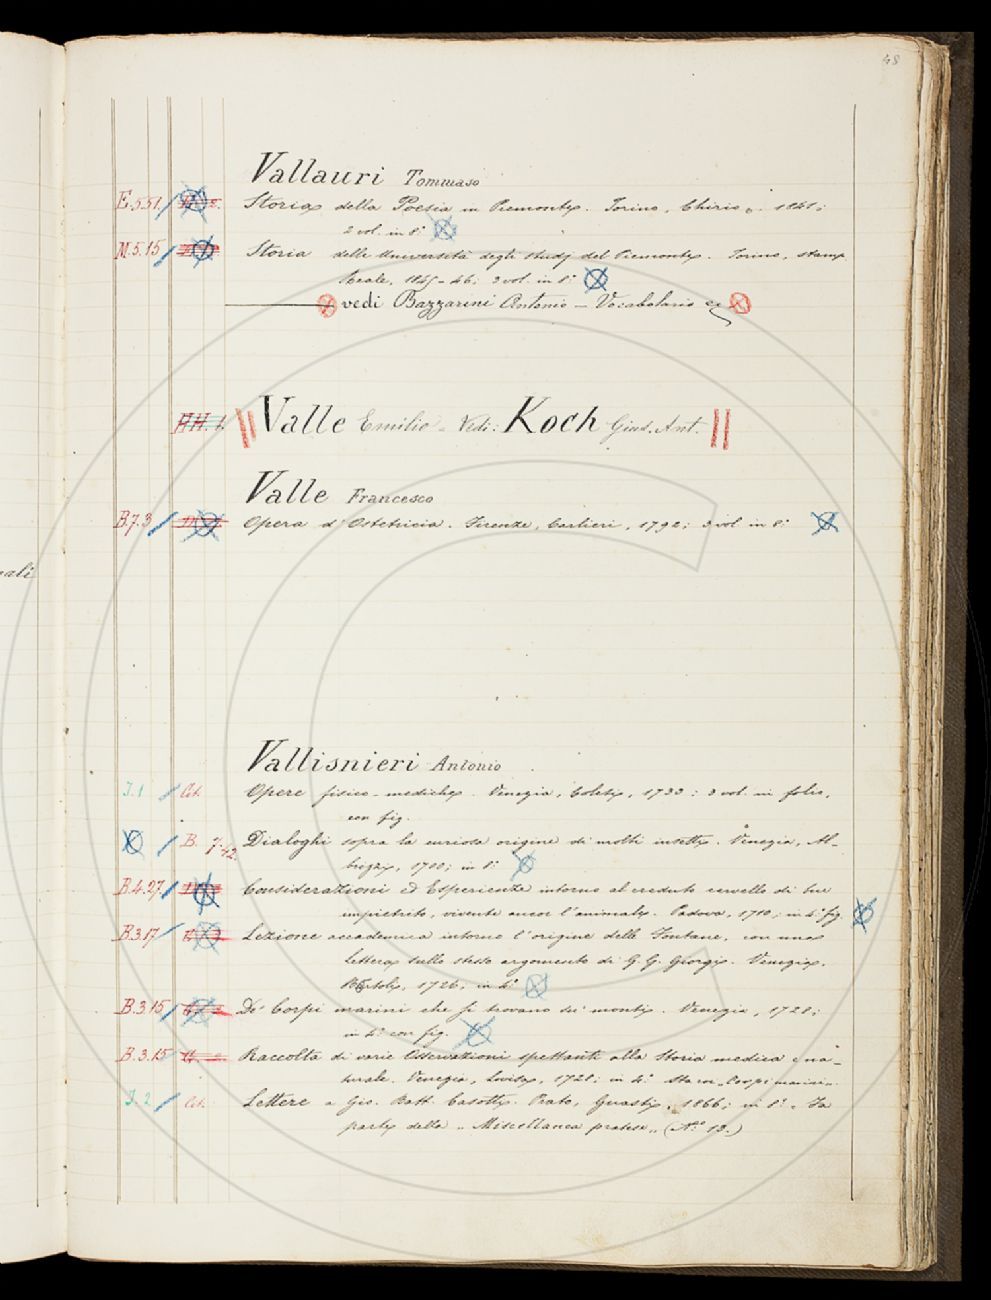 48
Vallauri Tommaso
E.5.51. Storia della Poesia in Piemonte. Torino, Chirio, 1841;
2 vol. in 8°
M.5.15 Storia delle Università degli Studj del Piemonte. Torino, stamp.
Reale, 1845-46; 3 vol. in 8°
vedi Bazzarini Antonio - Vocabolario
HH. 1. Valle Emilio - Vedi: Koch Giud. Ant.
Valle Francesco
B.7.3 Opera d'Ostetricia. Firenze, Carlieri, 1792; 3 vol. in 8°
ali
Vallisnieri Antonio
J.1 Opere fisico-mediche. Venezia, Coleti, 1733; 3 vol. in folio,
con fig.
B. 7.42 Dialoghi sopra la curiosa origine di molti insetti. Venezia, Al-
brizzi, 1700; in 8°
B.4.27 Considerazioni ed Esperienze intorno al creduto cervello di bue
impietrito, vivente ancor l'animale. Padova, 1710; in 4° fig.
B.3.17 Lezione accademica intorno l'origine delle Fontane, con una
lettera sullo stesso argomento di G. G. Giorgi. Venezia,
1726, in 4°
B.3.15 De' Corpi marini che si trovano su' monti. Venezia, 1728;
in 4° con fig.
B.3.15 Raccolta di varie Osservazioni spettanti alla Storia medica e na-
turale. Venezia, 1728; in 4°
J.2 Lettere a Gio. Batt. Casotti. Prato, Guasti, 1866; in 8°. Fa
parte della "Miscellanea pratese" (N.° 13.)